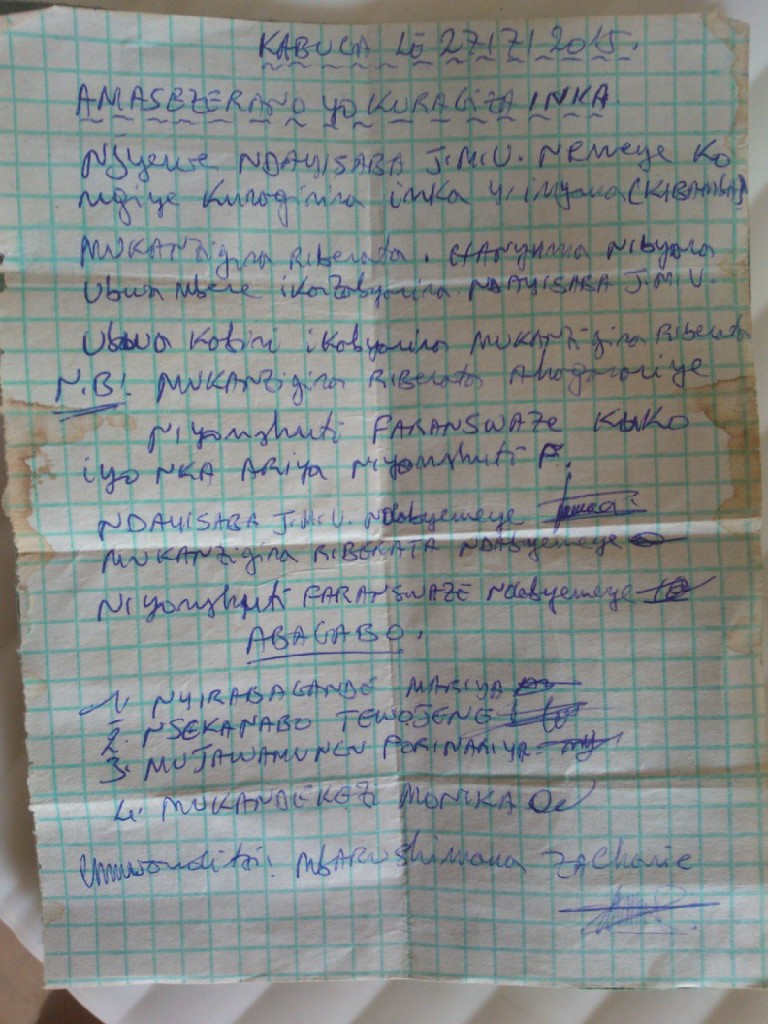 KABUGA LE 27/7/2015.
AMASEZERANO yo KURAGIZA INKA.
Njyewe NDAYISABA J.M.V. Nemeye ko
ngiye kuragirira inka y'imyaka (KIBAMBA)
MUKANZigira Riberata. HANyuma Nibyara
Ubwa mbere ikazabyarira NDAYISABA J.M.V.
Ubwa kabiri ikabyarira MUKANZigira Riberata
N.B! MUKANZigira RiBerata Ahagarariye
Niyonshuti FARANSWAZE KUKO
iyo NKA ARiya Niyonshuti F.
NDAYISABA J.M.V. Ndabyemeye
MUKANZigira RIBERATA NDAByemeye
Niyonshuti FARANSWAZE Ndabyemeye
ABAGABO.
1. NYIRABAGANDE MARIYA
2. NSEKANABO TEWOJENE
3. MUJAWAMUNGU PORINARIYA
4. MUKANDEKEZI MONIKA
Umwanditsi! MBARUshimana ZACharie